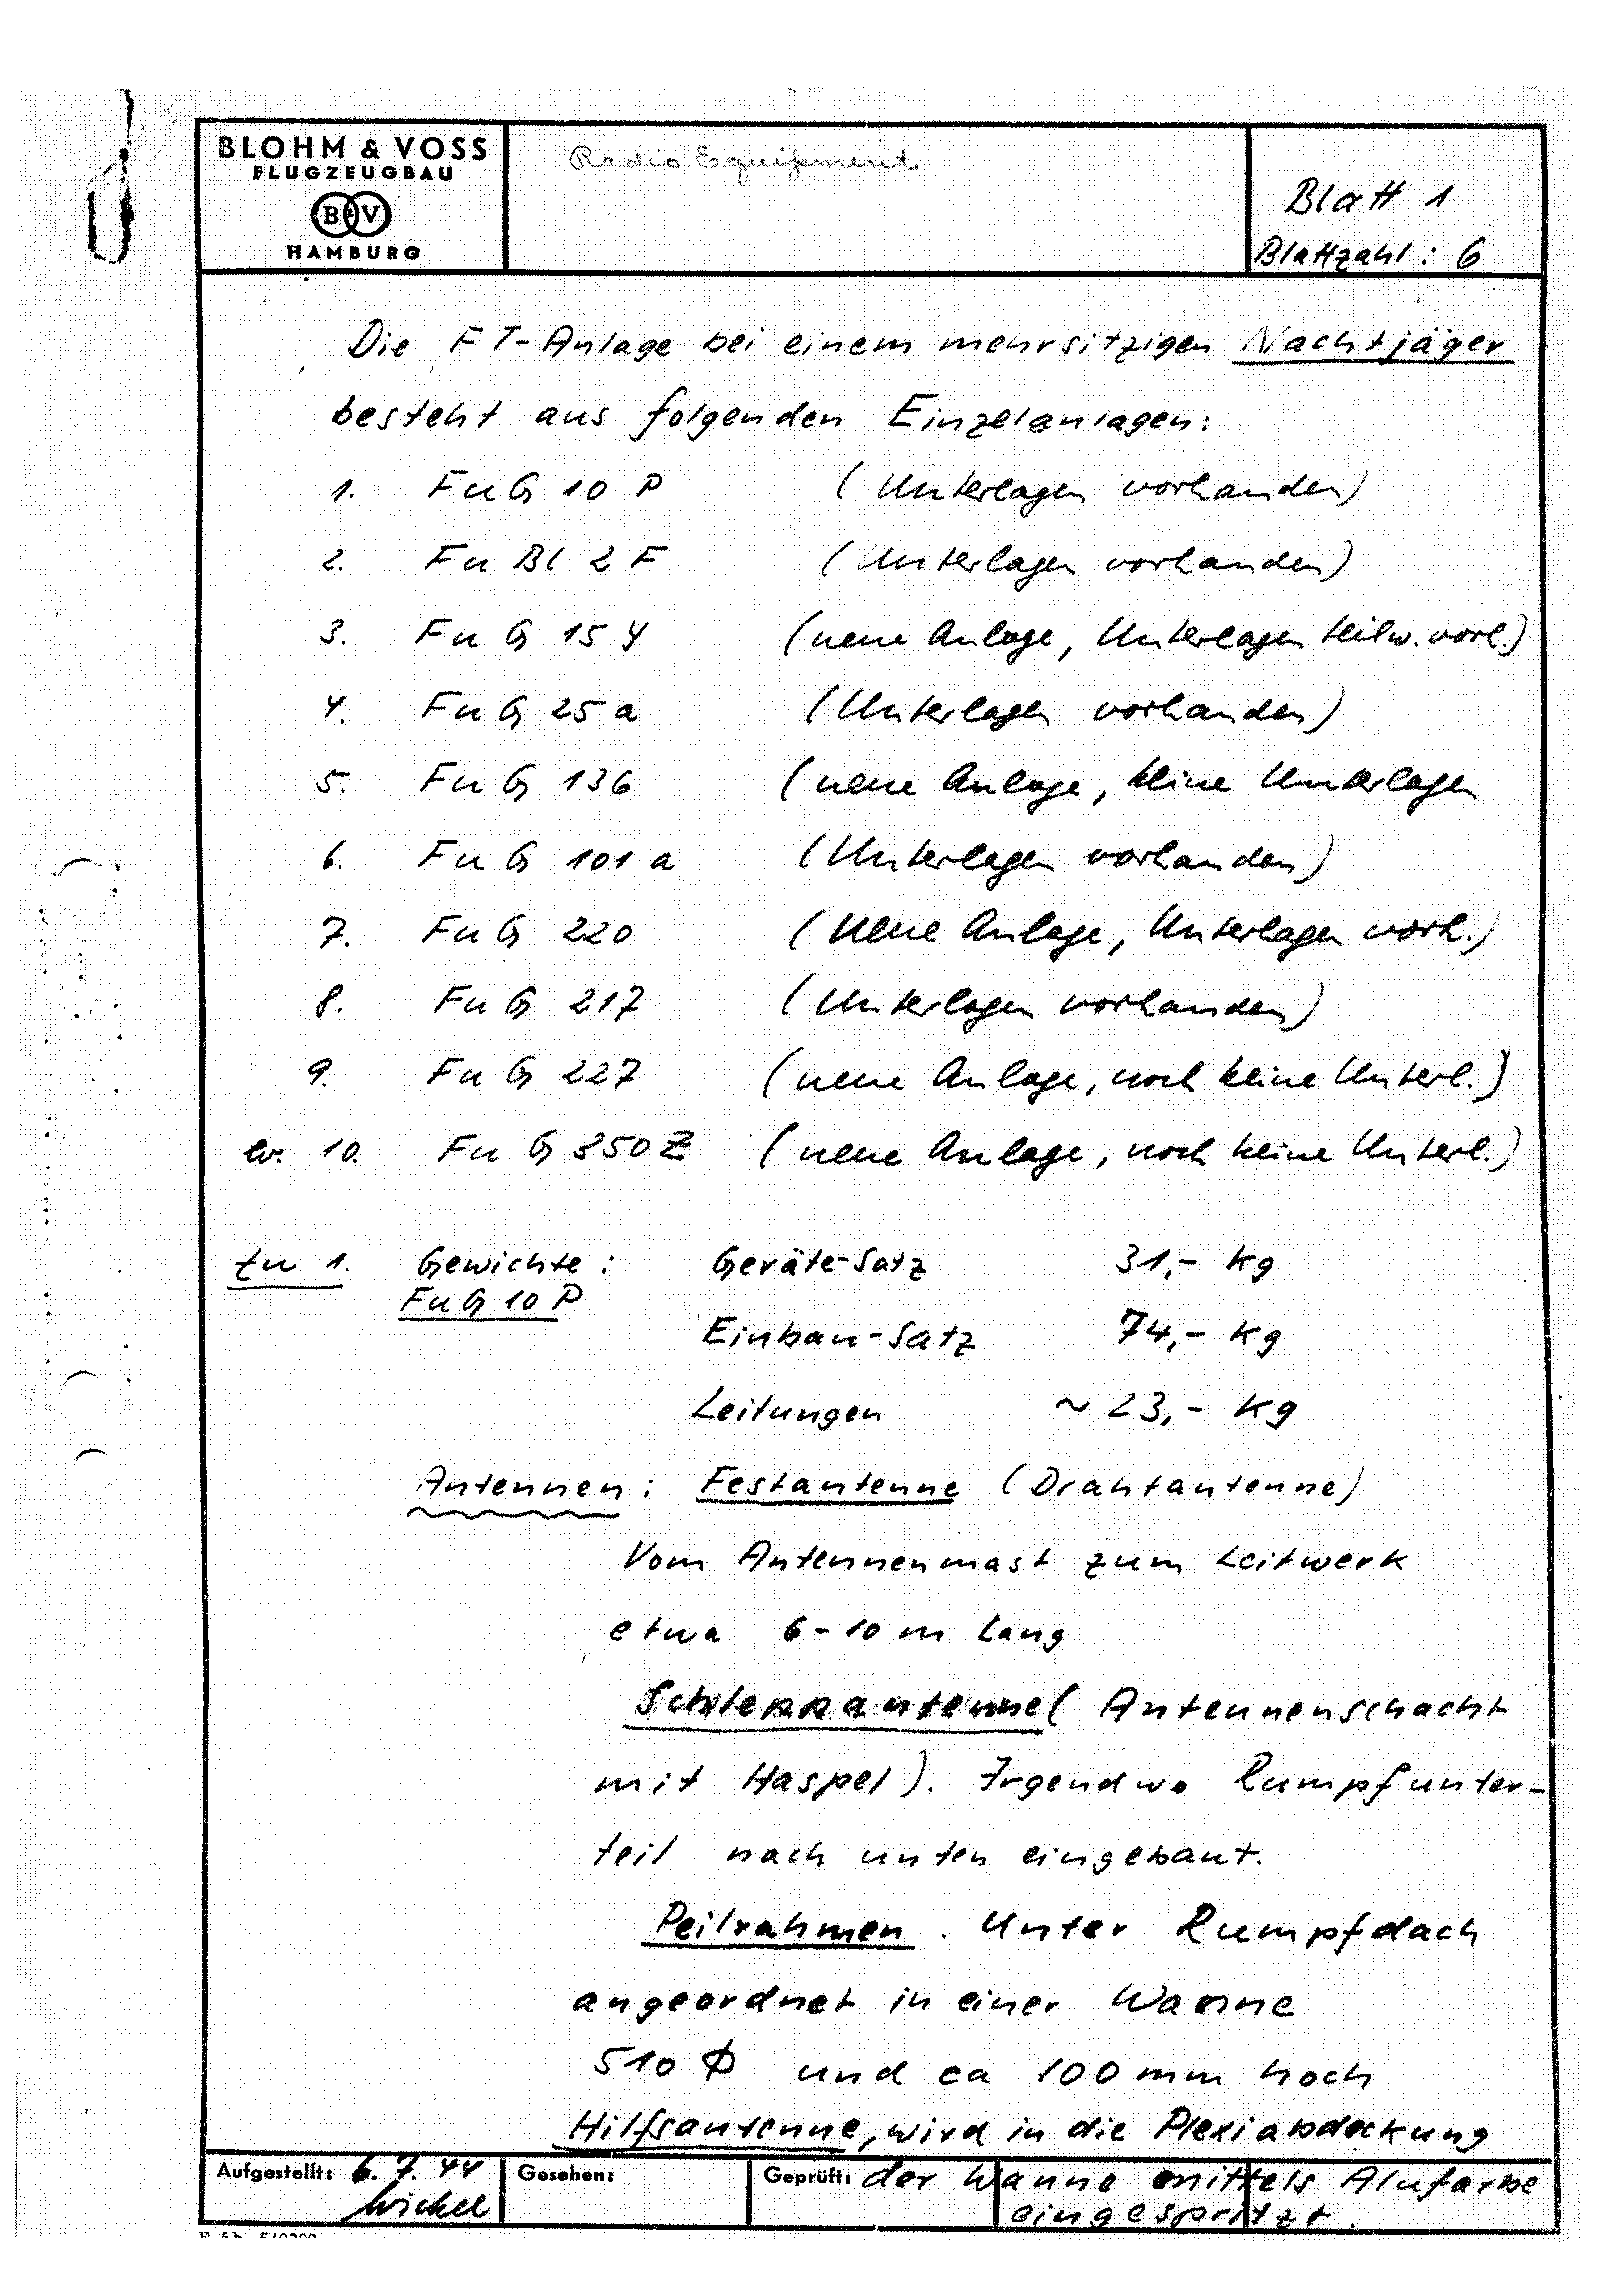 BLOHM & VOSS
FLUGZEUGBAU
B & V
HAMBURG
Radio Equipment
Blatt 1
Blattzahl: 6
Die FT-Anlage bei einem mehrsitzigen Nachtjäger
besteht aus folgenden Einzelanlagen:
1. FuG 10 P (Unterlagen vorhanden)
2. Fu Bl 2 F (Unterlagen vorhanden)
3. FuG 15 Y (neue Anlage, Unterlagen teilw. vorh.)
4. FuG 25 a (Unterlagen vorhanden)
5. FuG 136 (neue Anlage, keine Unterlagen
6. FuG 101 a (Unterlagen vorhanden)
7. FuG 220 (neue Anlage, Unterlagen vorh.)
8. FuG 217 (Unterlagen vorhanden)
9. FuG 227 (neue Anlage, noch keine Unterl.)
ev. 10. FuG 350 Z (neue Anlage, noch keine Unterl.)
zu 1. Gewichte: Geräte-Satz 31,- kg
FuG 10 P
Einbau-Satz 74,- kg
Leitungen ~ 23,- kg
Antennen: Festantenne (Drahtantenne)
Vom Antennenmast zum Leitwerk
etwa 6-10 m lang
Schleppantenne (Antennenschacht
mit Haspel). Irgendwo Rumpfunter-
teil nach unten eingebaut.
Peilrahmen. Unter Rumpfdach
angeordnet in einer Wanne
510 Φ und ca 100 mm hoch
Hilfsantenne, wird in die Plexiabdeckung
der Wanne mittels Alufarbe
eingespritzt.
Aufgestellt: 6.7.44 Gesehen: Geprüft:
Wickel